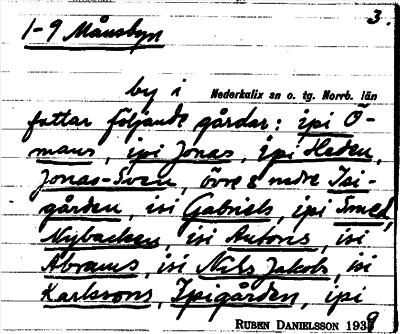 3.
1-9 Månsbyn
by i Nederkalix sn o. tg. Norrb. län
fattar följande gårdar: ipi Ö-
mans, ipi Jonas, ipi Heden,
Jonas-Sven, övre & nedre Isi-
gården, isi Gabriels, ipi Smed,
Nybacken, isi Antons, isi
Abrams, isi Nils Jakobs, isi
Karlssons, Ipigården, ipi
RUBEN DANIELSSON 1939